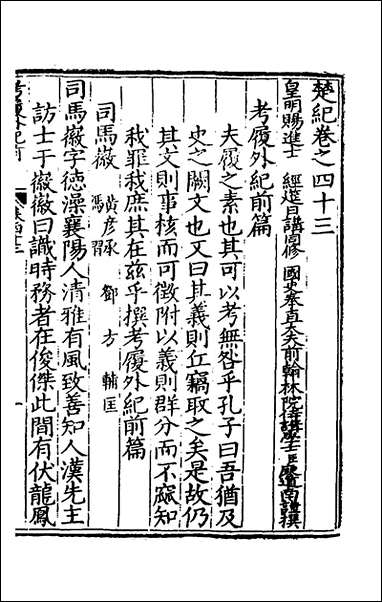 楚紀卷之四十三
皇明賜進士 經筵日講官同修 國史奉直大夫前翰林院侍講學士臣廖道南謹撰
考履外紀前篇
夫履之素也其可以考無咎乎孔子曰吾猶及
史之闕文也又曰其義則丘竊取之矣是故仍
其文則事核而可徵附以義則群分而不竄知
我罪我庶其在兹乎撰考履外紀前篇
司馬徽 黃彦承 鄧方 輔匡
馮習
司馬徽字德澡襄陽人清雅有風致善知人漢先主
訪士于徽徽曰識時務者在俊傑此間有伏龍鳳